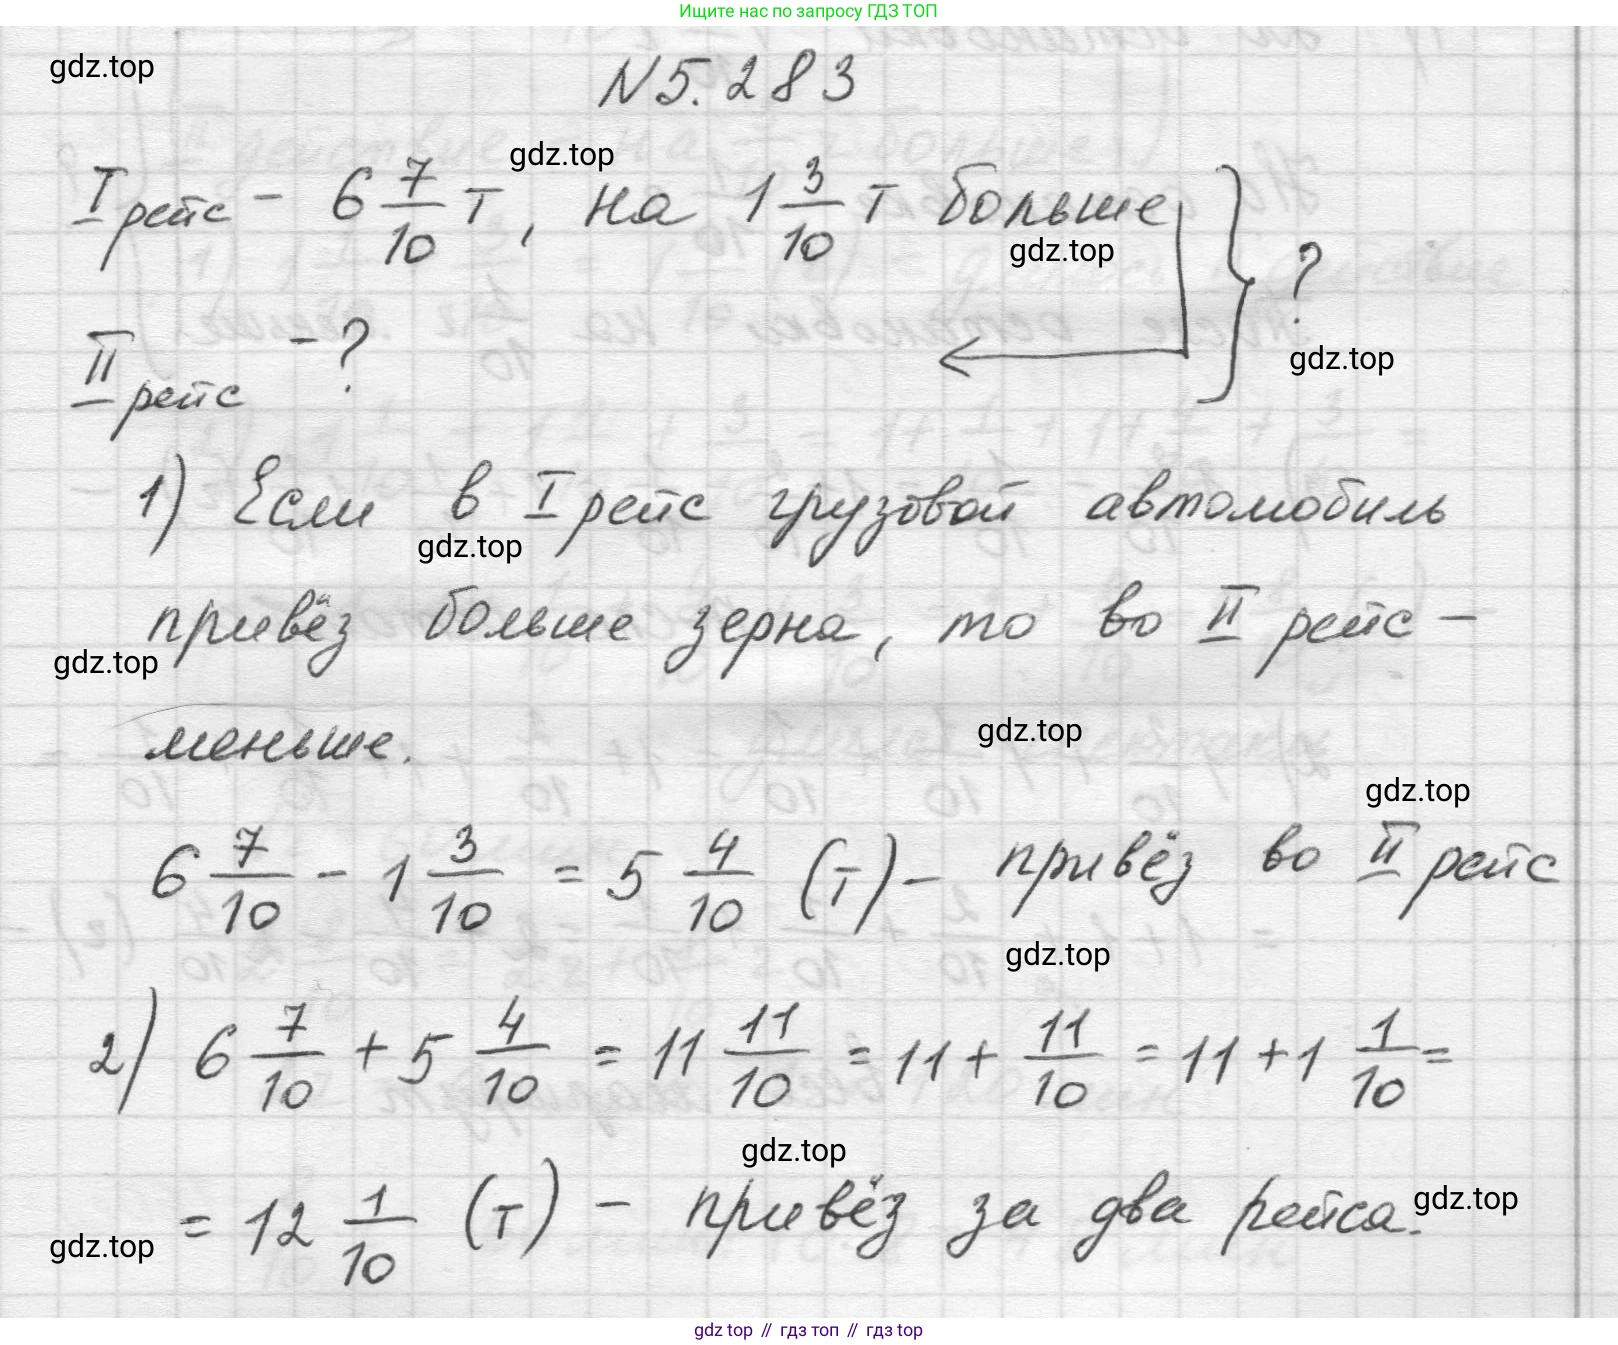 Ищите нас по запросу ГДЗ ТОП
gdz.top
N 5. 283
gdz.top
I рейс - 6 7/10 т, на 1 3/10 т больше } ?
gdz.top
gdz.top
II рейс - ?
1) Если в I рейс грузовой автомобиль
gdz.top
привёз больше зерна, то во II рейс -
gdz.top
меньше.
gdz.top
gdz.top
6 7/10 - 1 3/10 = 5 4/10 (т) - привёз во II рейс
gdz.top
2) 6 7/10 + 5 4/10 = 11 11/10 = 11 + 11/10 = 11 + 1 1/10 =
gdz.top
= 12 1/10 (т) - привёз за два рейса.
gdz.top
gdz.top
gdz top // гдз топ // гдз top